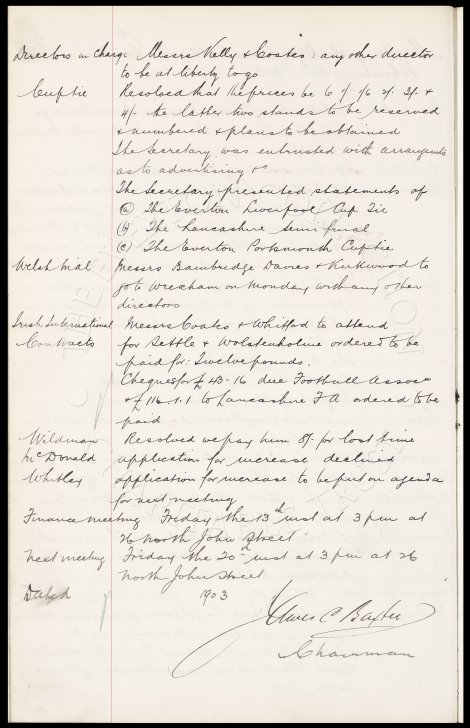 Directors in Charge Messrs Kelly & Coates: any other director
to be at liberty to go
Cuptie Resolved that the prices be 6d 1/6 2/- 3/- &
4/- the latter two stands to be reserved
& numbered & plans to be obtained
The Secretary was entrusted with arrangements
as to advertising &c
The Secretary presented statements of
(a) The Everton Liverpool Cup Tie
(b) The Lancashire Semi final
(c) The Everton Portsmouth Cuptie
Welsh trial Messrs Bainbridge Davies & Kirkwood to
go to Wrexham on Monday with any other
directors
Irish International Messrs Coates & Whitford to attend
Contracts for Settle & Wolstenholme ordered to be
paid for: Twelve pounds.
Cheques for £43-16 due Football Assocn
& £116-1-1 to Lancashire F A ordered to be
paid
Wildman Resolved we pay him 8/- for lost time
McDonald application for increase declined
Whitley application for increase to be put on agenda
for next meeting
Finance meeting Friday the 13th inst at 3 pm at
26 North John Street
Next meeting Friday the 20th inst at 3 pm at 26
North John Street
Dated 1903
James C Baxter
Chairman